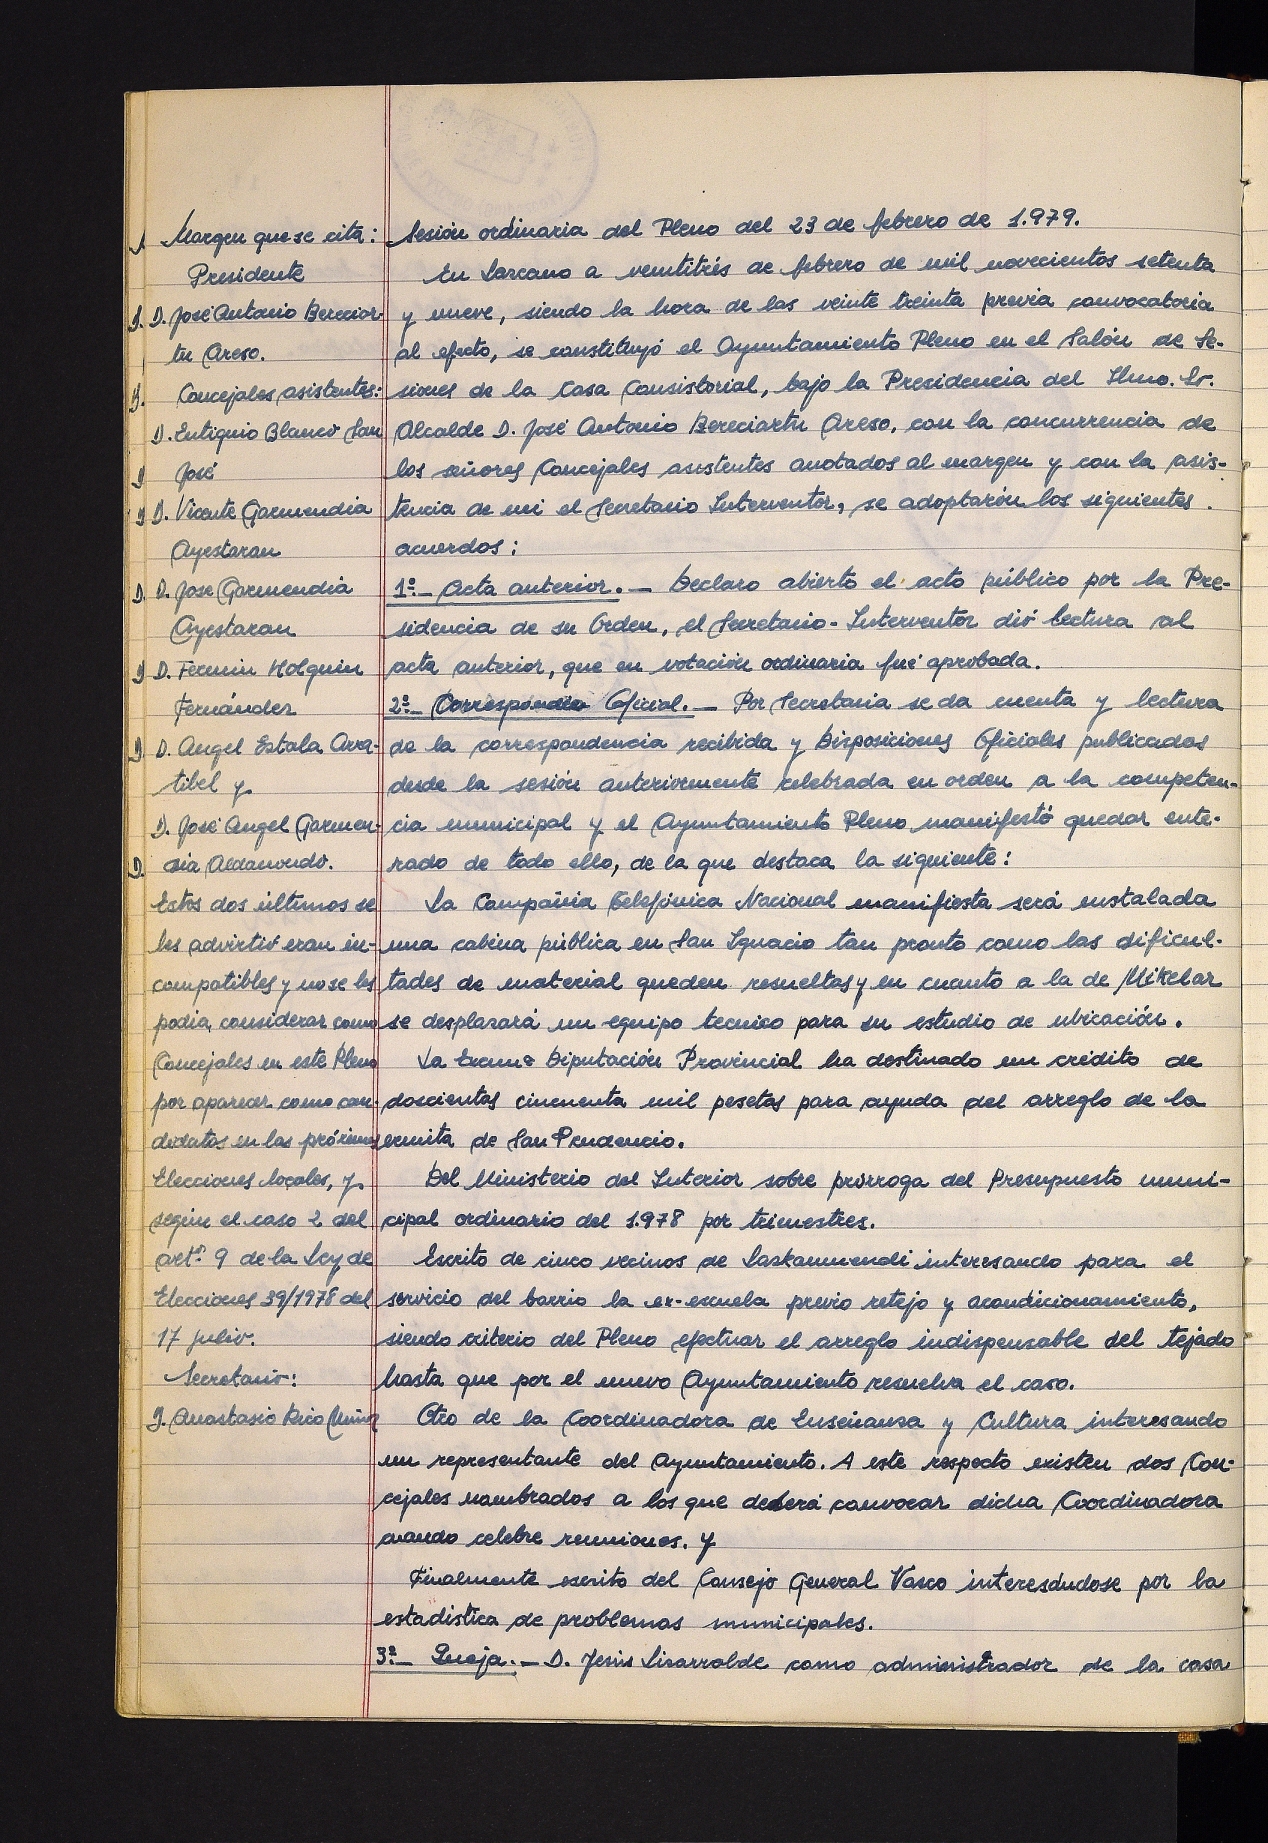 Margen que se cita:
Presidente
D. José Antonio Bereciar-
tu Areso.
Concejales asistentes:
D. Eutiquio Blanco San
José
D. Vicente Garmendia
Ayestaran
D. Jose Garmendia
Ayestaran
D. Fermin Holguin
Fernández
D. Angel Estala Ara-
tibel y
D. José Angel Garmen-
dia Aldanondo.
Estos dos últimos se
les advirtió eran in-
compatibles y no se les
podia considerar como
Concejales en este Pleno
por aparecer como can-
didatos en las próximas
Elecciones locales, y
según el caso 2 del
artº 9 de la Ley de
Elecciones 39/1978 del
17 julio.
Secretario:
D. Anastasio Rico Muñoz
Sesión ordinaria del Pleno del 23 de febrero de 1.979.
En Lazcano a veintitrés de febrero de mil novecientos setenta
y nueve, siendo la hora de las veinte treinta previa convocatoria
al efecto, se constituyó el Ayuntamiento Pleno en el Salón de Se-
siones de la Casa Consistorial, bajo la Presidencia del Ilmo. Sr.
Alcalde D. José Antonio Bereciartu Areso, con la concurrencia de
los señores Concejales asistentes anotados al margen y con la asis-
tencia de mi el Secretario Interventor, se adoptarón los siguientes
acuerdos:
1º_ Acta anterior._ Declaro abierto el acto público por la Pre-
sidencia de su Orden, el Secretario-Interventor dió lectura al
acta anterior, que en votación ordinaria fué aprobada.
2º_ Correspondea Oficial._ Por Secretaria se da cuenta y lectura
de la correspondencia recibida y Disposiciones Oficiales publicadas
desde la sesión anteriormente celebrada en orden a la competen-
cia municipal y el Ayuntamiento Pleno manifestó quedar ente-
rado de todo ello, de la que destaca la siguiente:
La Compañia Telefónica Nacional manifiesta será instalada
una cabina pública en San Ignacio tan pronto como las dificul-
tades de material queden resueltas y en cuanto a la de Mikelar
se desplazará un equipo tecnico para su estudio de ubicación.
La Excma Diputación Provincial ha destinado un crédito de
doscientas cincuenta mil pesetas para ayuda del arreglo de la
ermita de San Prudencio.
Del Ministerio del Interior sobre prórroga del Presupuesto muni-
cipal ordinario del 1.978 por trimestres.
Escrito de cinco vecinos de Lazkaomendi interesando para el
servicio del barrio la ex-escuela previo retejo y acondicionamiento,
siendo criterio del Pleno efectuar el arreglo indispensable del tejado
hasta que por el nuevo Ayuntamiento resuelva el caso.
Otro de la Coordinadora de Enseñanza y Cultura interesando
un representante del Ayuntamiento. A este respecto existen dos Con-
cejales nombrados a los que deberá convocar dicha Coordinadora
cuando celebre reuniones. y
Finalmente escrito del Consejo General Vasco interesándose por la
estadistica de problemas municipales.
3º_ Queja._ D. Jesús Lizarralde como administrador de la casa